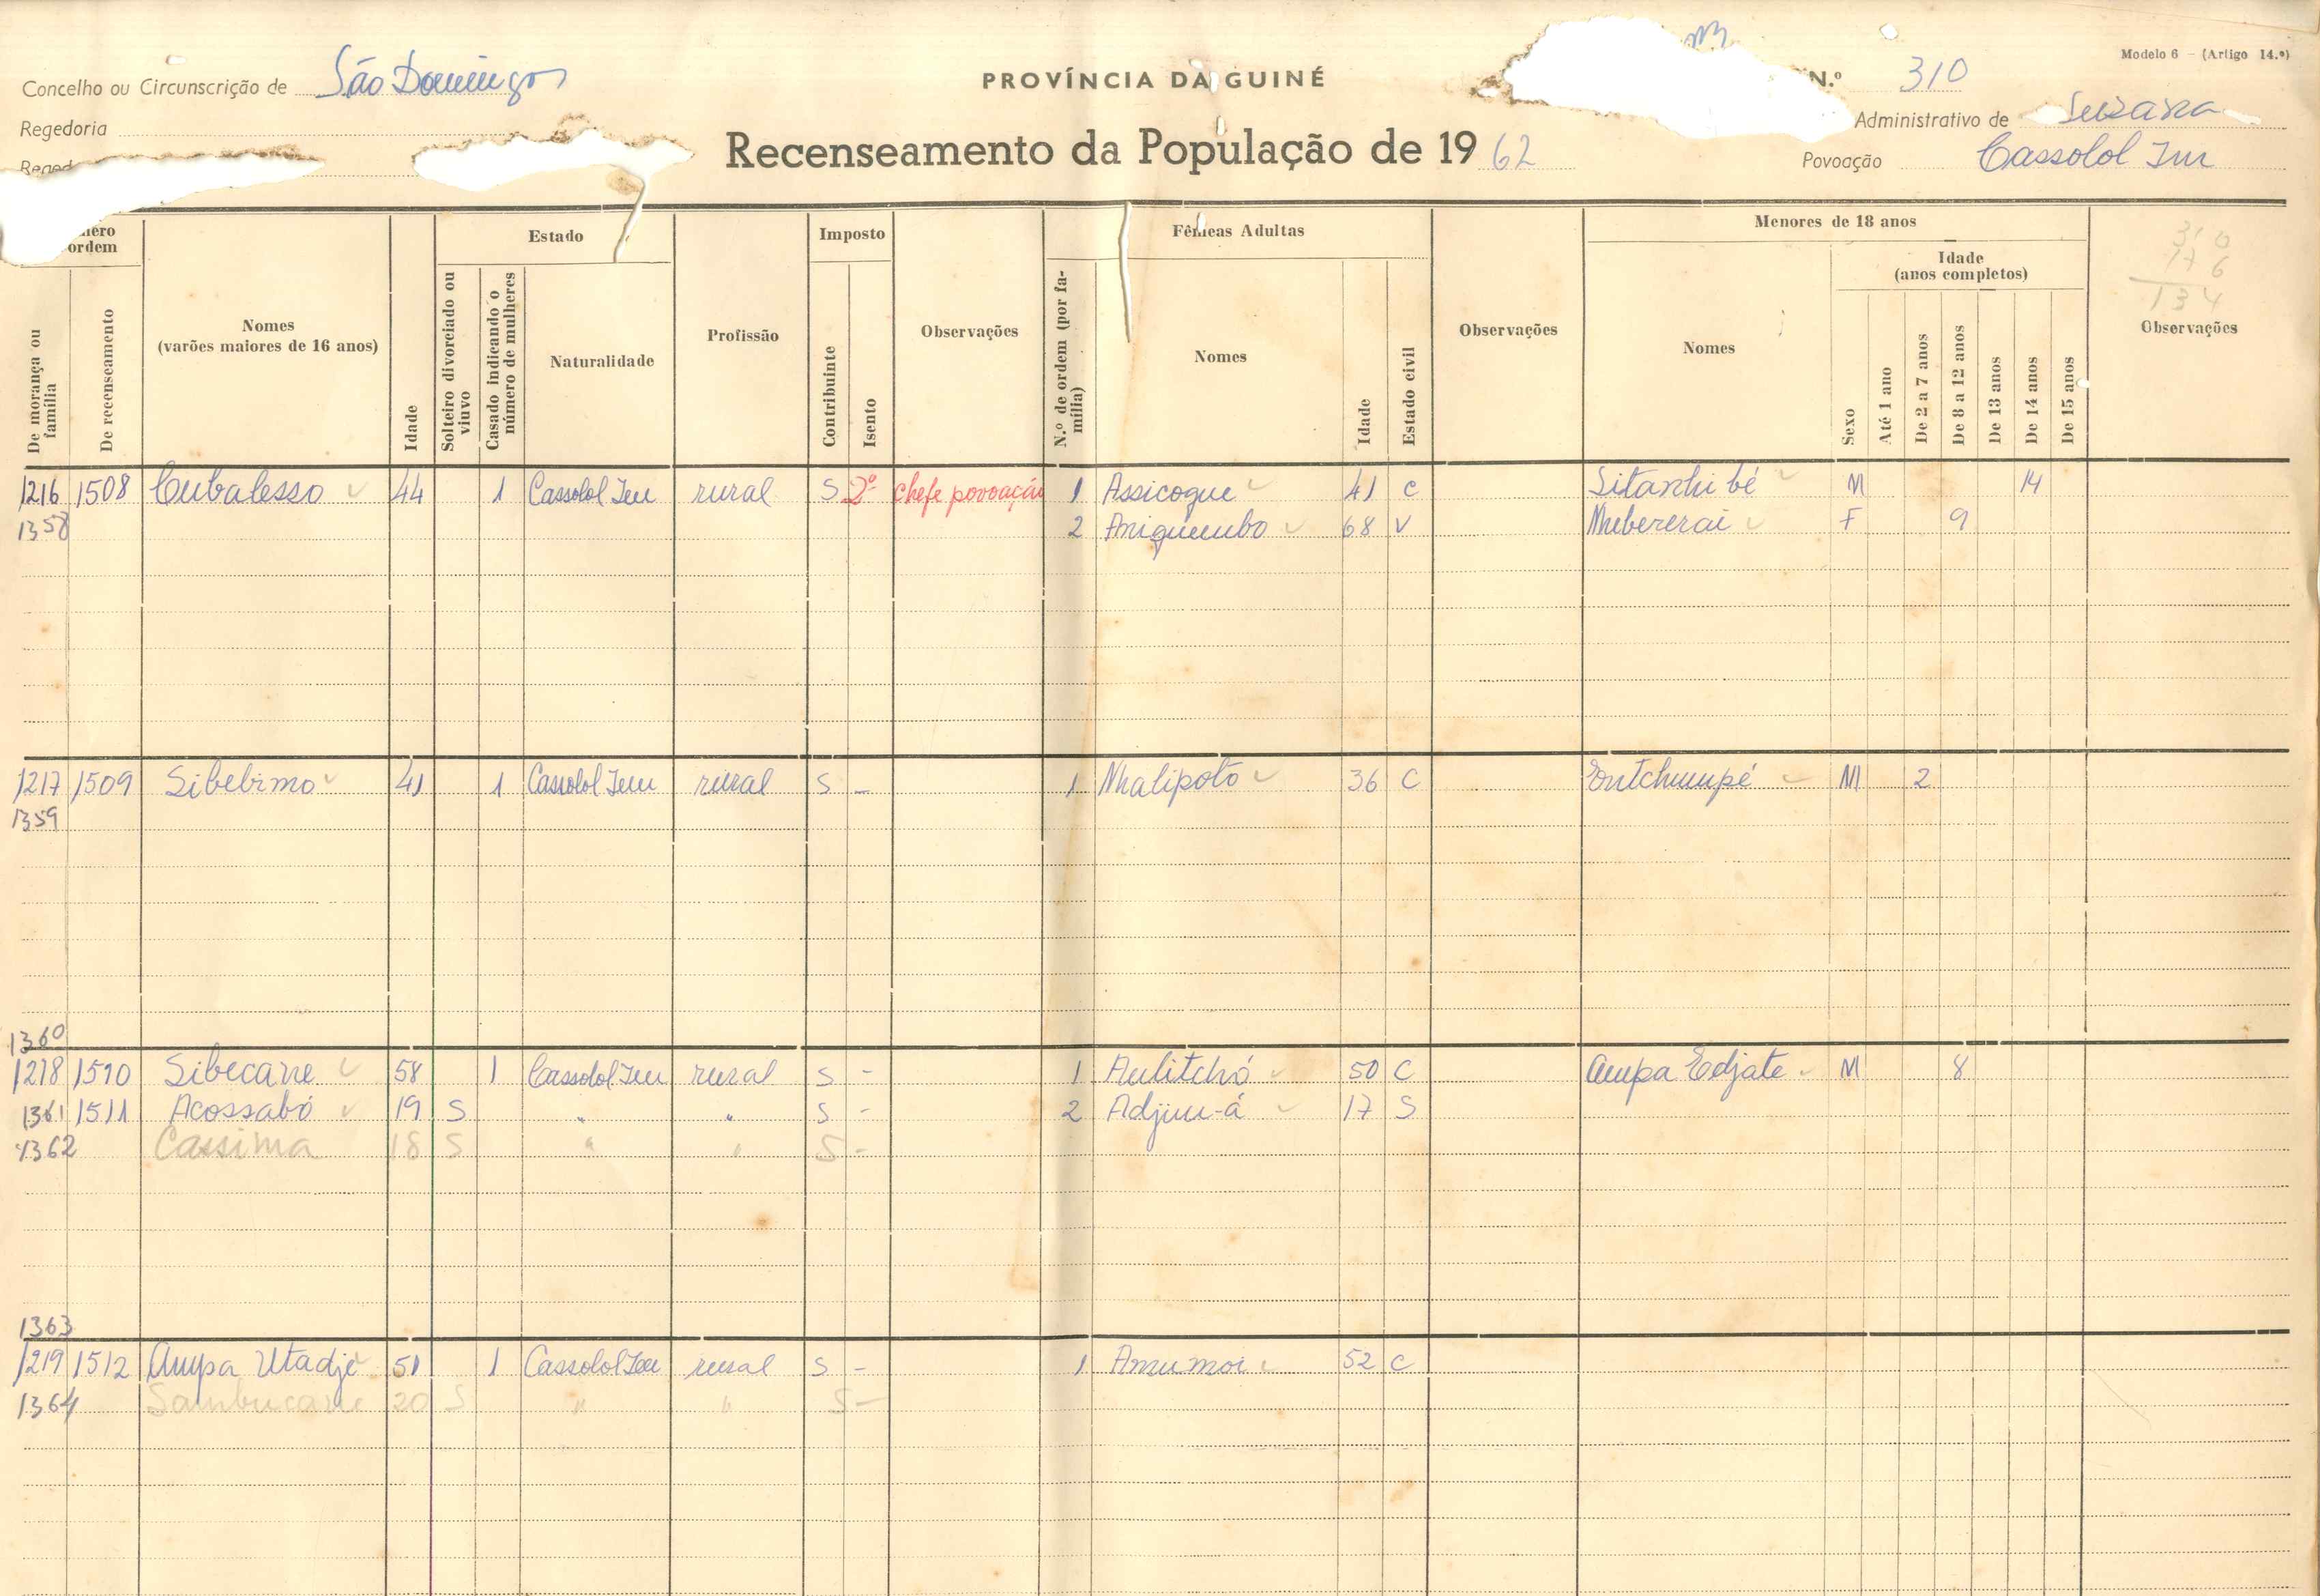 Modelo 6 – (Artigo 14.º)
Concelho ou Circunscrição de São Domingos
PROVÍNCIA DA GUINÉ
N.º 310
Regedoria
Administrativo de
Recenseamento da População de 1962
Povoação Cassolol
ordem
Nomes
(varões maiores de 16 anos)
Idade
Estado
Solteiro divorciado ou viuvo
Casado indicando o número de mulheres
Naturalidade
Profissão
Imposto
Contribuinte
Isento
Observações
Fêmeas Adultas
N.º de ordem (por família)
Nomes
Idade
Estado civil
Observações
Menores de 18 anos
Nomes
Sexo
Idade
(anos completos)
Até 1 ano
De 2 a 7 anos
De 8 a 12 anos
De 13 anos
De 14 anos
De 15 anos
310
176
134
Observações
De morança ou família
De recenseamento
1216 1508 Cubalesso 44 1 Cassolol rural S chefe povoação 1 Assicogue 41 C Sitanhibé M 14
1358 2 68 V F 9
1217 1509 Sibebimo 41 1 Cassolol rural S - 1 Nhalipoto 36 C M 2
1359
1360
1218 1510 Sibecane 58 1 Cassolol rural S - 1 Aulitchó 50 C Aupa Edjate M 8
1361 1511 Acossabó 19 S " " S - 2 17 S
1362 Cassima 18 S " " S -
1363
1219 1512 Aupa Utadje 51 1 Cassolol rural S - 1 Amumoi 52 C
1364 Sambucane 20 S " " S -